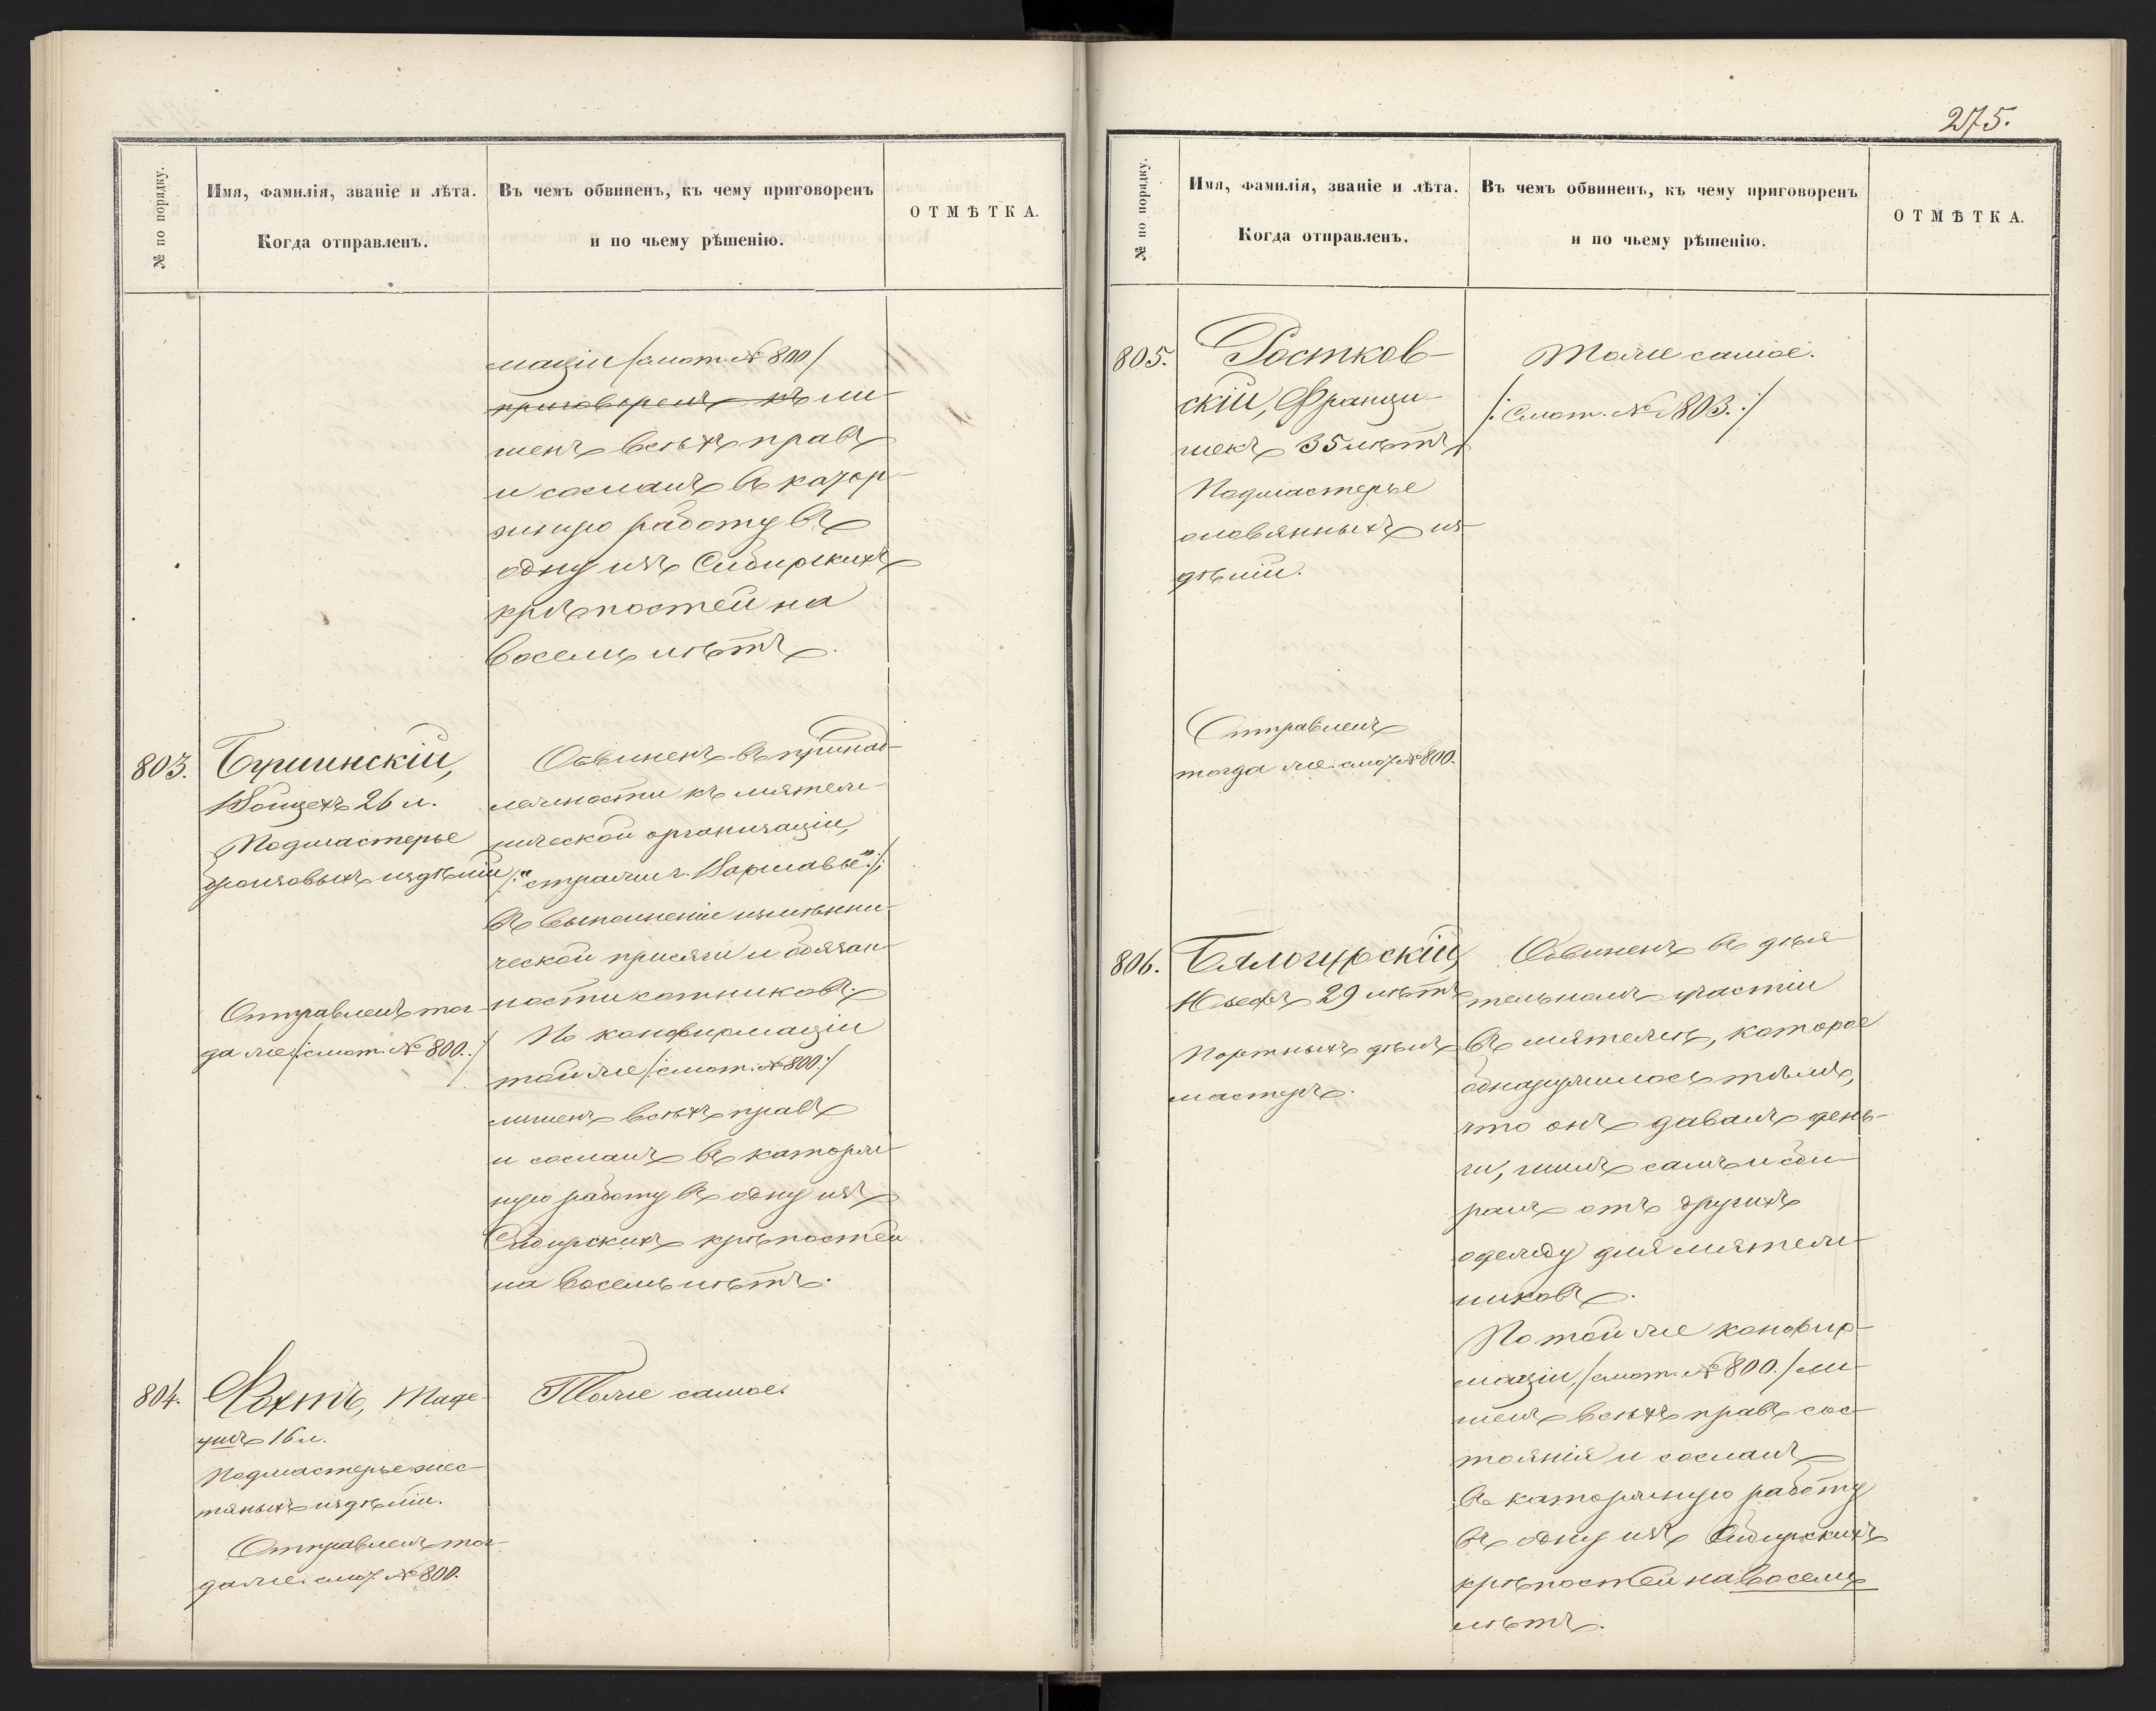 № по порядку.
Имя, фамилія, званіе и лѣта.
Когда отправленъ.
Въ чемъ обвиненъ, къ чему приговоренъ
и по чьему рѣшенію.
ОТМѢТКА.
маціи /смот. № 800/
приговоренъ къ ли-
шенъ всѣхъ правъ
и сосланъ въ катор-
жную работу въ
одну изъ Сибирскихъ
крѣпостей на
восемь лѣтъ.
803.
Войцехъ 26 л.
Подмастерье
бронзовыхъ издѣлій
Отправленъ тог-
да же /:смот. № 800.:/
Обвиненъ въ принад-
лежности къ мятеж-
нической организаціи,
/:"стражи г. Варшавы":/,
въ выполненіи измѣнни-
ческой присяги и обязан-
ности сотниковъ.
По конфирмаціи
той же /:смот. № 800:/
лишенъ всѣхъ правъ
и сосланъ въ каторж-
ную работу въ одну изъ
Сибирскихъ крѣпостей
на восемь лѣтъ.
804.
16 л.
Подмастерье жес-
тяныхъ издѣлій.
Отправленъ тог-
да же. смот. № 800.
Тоже самое.
275.
№ по порядку.
Имя, фамилія, званіе и лѣта.
Когда отправленъ.
Въ чемъ обвиненъ, къ чему приговоренъ
и по чьему рѣшенію.
ОТМѢТКА.
805.
Ростков-
скій, Франци-
шекъ 35 лѣтъ
Подмастерье
оловянныхъ из-
дѣлій.
Отправленъ
тогда же. смот. № 800.
Тоже самое.
/:Смот. № 803.:/
806.
Бялогурскій,
Юзефъ 29 лѣтъ
Портныхъ дѣлъ
мастеръ.
Обвиненъ въ дѣя-
тельномъ участіи
въ мятежѣ, которое
обнаружилось тѣмъ,
что онъ давалъ день-
ги, шилъ самъ и соби-
ралъ отъ другихъ
одежду для мятеж-
никовъ.
По той же конфир-
маціи, /смот. № 800./ ли-
шенъ всѣхъ правъ сос-
тоянія и сосланъ
въ каторжную работу
въ одну изъ Сибирскихъ
крѣпостей на восемь
лѣтъ.